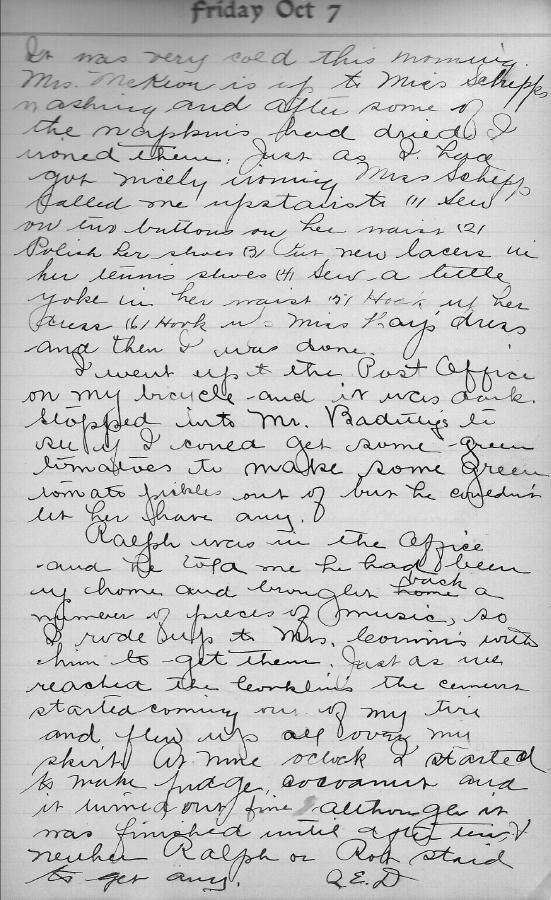 Friday Oct 7
It was very cold this morning.
Mrs. McKeon is up to Miss Schipps
washing and after some of
the napkins had dried I
ironed them. Just as I had
got nicely ironing Miss Schipp
called me upstairs to (1) Sew
on two buttons on her waist (2)
Polish her shoes (3) Put new lacers in
her tennis shoes (4) Sew a little
yoke in her waist (5) Hook up her
dress (6) Hook up Miss Kay's dress
and then I was done.
I went up to the Post Office
on my bicycle and it was dark.
Stopped into Mr. Bading's to
see if I could get some green
tomatoes to make some green
tomato pickles out of but he couldn't
let her have any.
Ralph was in the Office
and he told me he had been
up home and brought home back a
number of pieces of music, so
I rode up to Mrs. with
him to get them. Just as we
reached the Conklins the cement
started coming out of my tire
and flew up all over my
skirt. At nine o'clock I started
to make fudge, cocoanut and
it turned out fine although it
was finished until after ten &
neither Ralph or Rob staid
to get any. Q.E.D